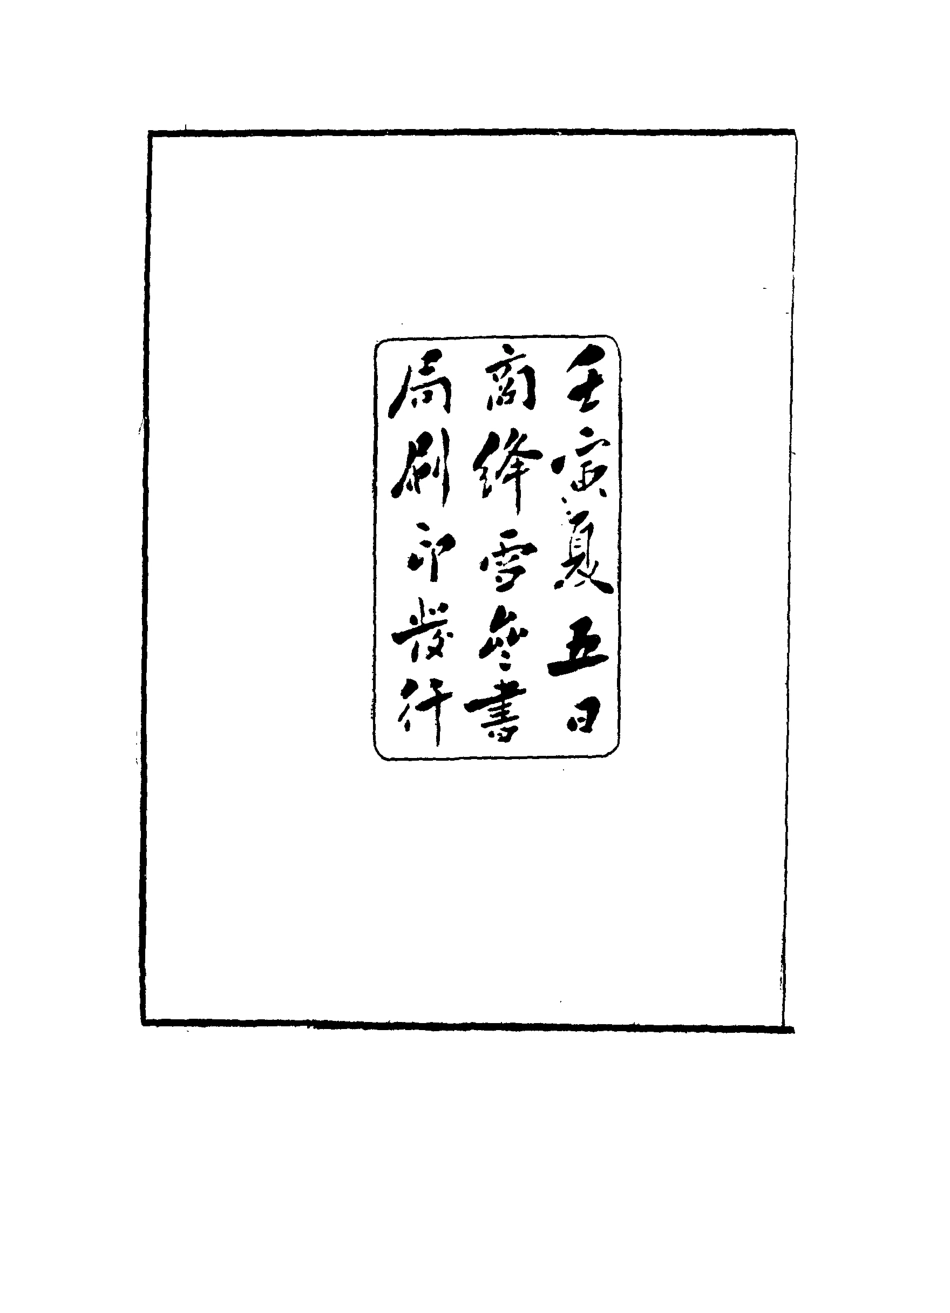 壬寅夏五日
商絳雪參書
局刷印發行